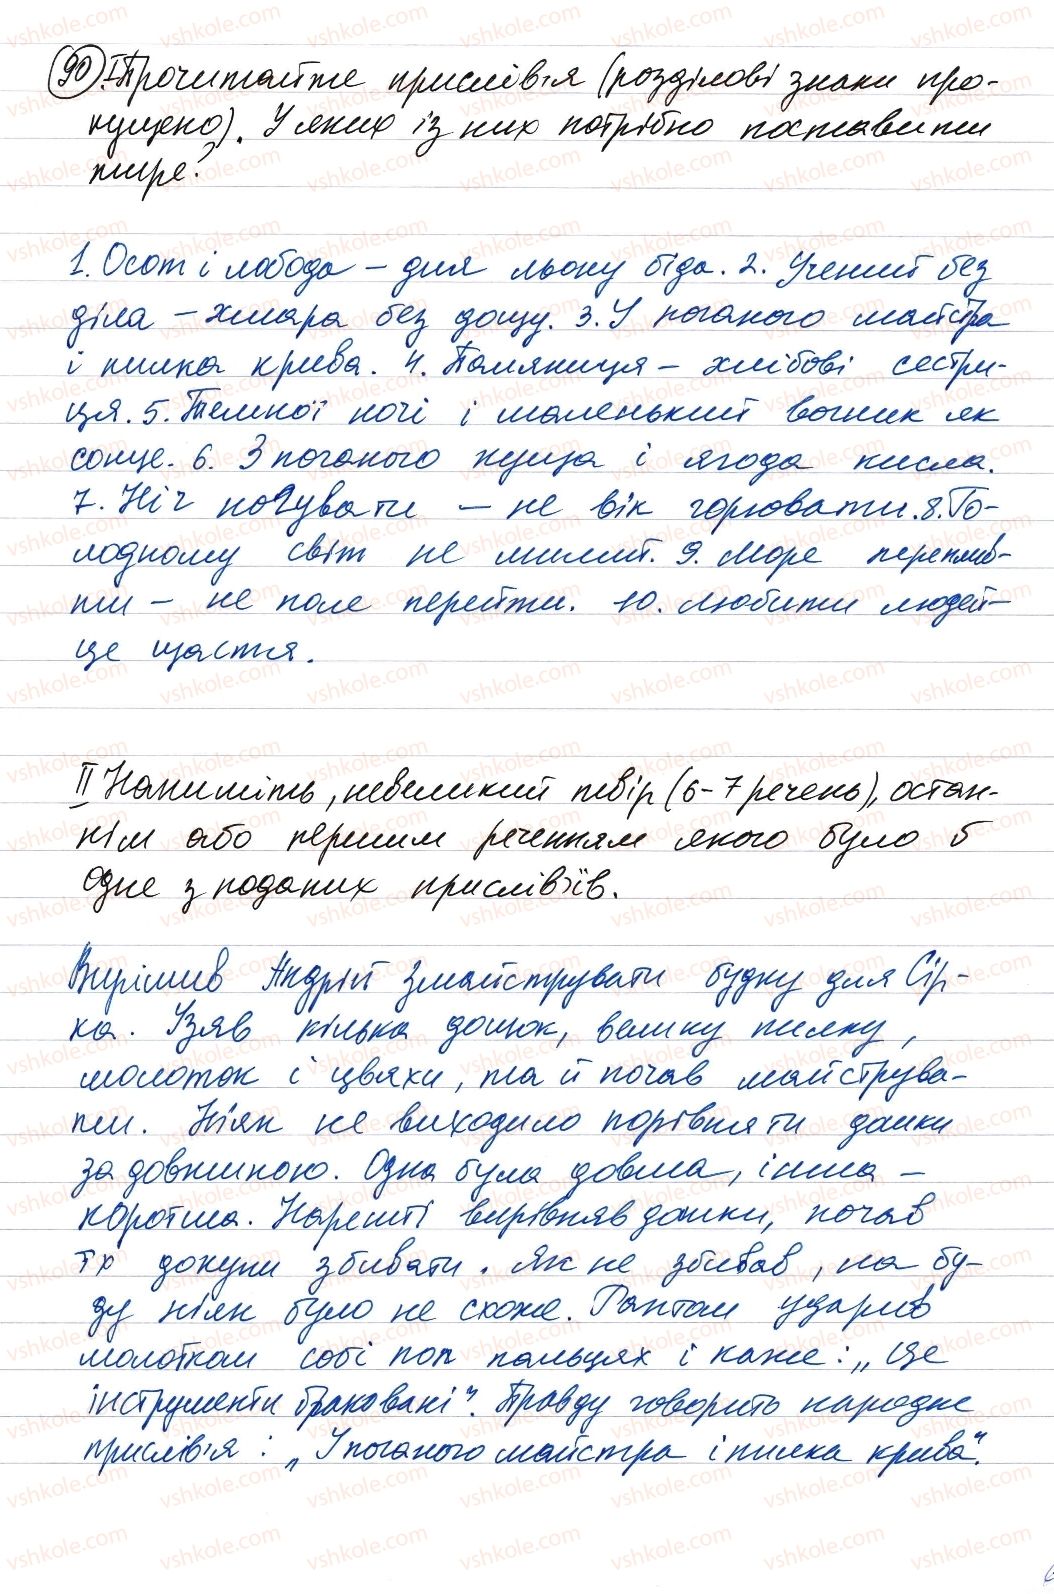 90. І Прочитайте прислів'я (розділові знаки про-
пущено). У яких із них потрібно поставити
тире?
1. Осот і лобода – для льону біда. 2. Учений без
діла – хмара без дощу. 3. У поганого майстра
і пилка крива. 4. Паляниця – хлібові сестри-
ця. 5. Темної ночі і маленький вогник як
сонце. 6. З поганого куща і ягода кисла.
7. Ніч ночувати – не вік горювати. 8. Го-
лодному світ не милий. 9. Море перепливе-
ти – не поле перейти. 10. Любити людей –
це щастя.
ІІ Напишіть, невеликий твір (6-7 речень), остан-
нім або першим реченням якого було б
одне з поданих прислів'їв.
Вирішив Андрій змайструвати будку для Сір-
ка. Узяв кілька дощок, велику пилку,
молоток і цвяхи, та й почав майструва-
ти. Ніяк не виходило порівняти дошки
за довжиною. Одна була довша, інша –
коротша. Нарешті вирівняв дошки, почав
їх докупи збивати. Як не збивав, на бу-
ду ніяк було не схоже. Раптом ударив
молотком собі поп пальцях і каже: „Це
інструменти браковані". Правду говорить народне
прислів'я: „У поганого майстра і пилка крива".